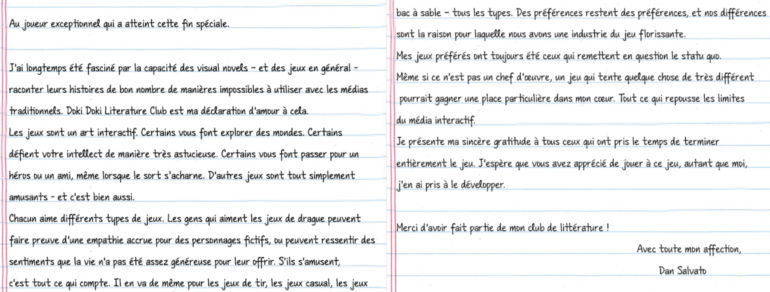 Au joueur exceptionnel qui a atteint cette fin spéciale.
J'ai longtemps été fasciné par la capacité des visual novels - et des jeux en général -
raconter leurs histoires de bon nombre de manières impossibles à utiliser avec les médias
traditionnels. Doki Doki Literature Club est ma déclaration d'amour à cela.
Les jeux sont un art interactif. Certains vous font explorer des mondes. Certains
défient votre intellect de manière très astucieuse. Certains vous font passer pour un
héros ou un ami, même lorsque le sort s'acharne. D'autres jeux sont tout simplement
amusants - et c'est bien aussi.
Chacun aime différents types de jeux. Les gens qui aiment les jeux de drague peuvent
faire preuve d'une empathie accrue pour des personnages fictifs, ou peuvent ressentir des
sentiments que la vie n'a pas été assez généreuse pour leur offrir. S'ils s'amusent,
c'est tout ce qui compte. Il en va de même pour les jeux de tir, les jeux casual, les jeux
bac à sable - tous les types. Des préférences restent des préférences, et nos différences
sont la raison pour laquelle nous avons une industrie du jeu florissante.
Mes jeux préférés ont toujours été ceux qui remettent en question le statu quo.
Même si ce n'est pas un chef d'œuvre, un jeu qui tente quelque chose de très différent
pourrait gagner une place particulière dans mon cœur. Tout ce qui repousse les limites
du média interactif.
Je présente ma sincère gratitude à tous ceux qui ont pris le temps de terminer
entièrement le jeu. J'espère que vous avez apprécié de jouer à ce jeu, autant que moi,
j'en ai pris à le développer.
Merci d'avoir fait partie de mon club de littérature !
Avec toute mon affection,
Dan Salvato